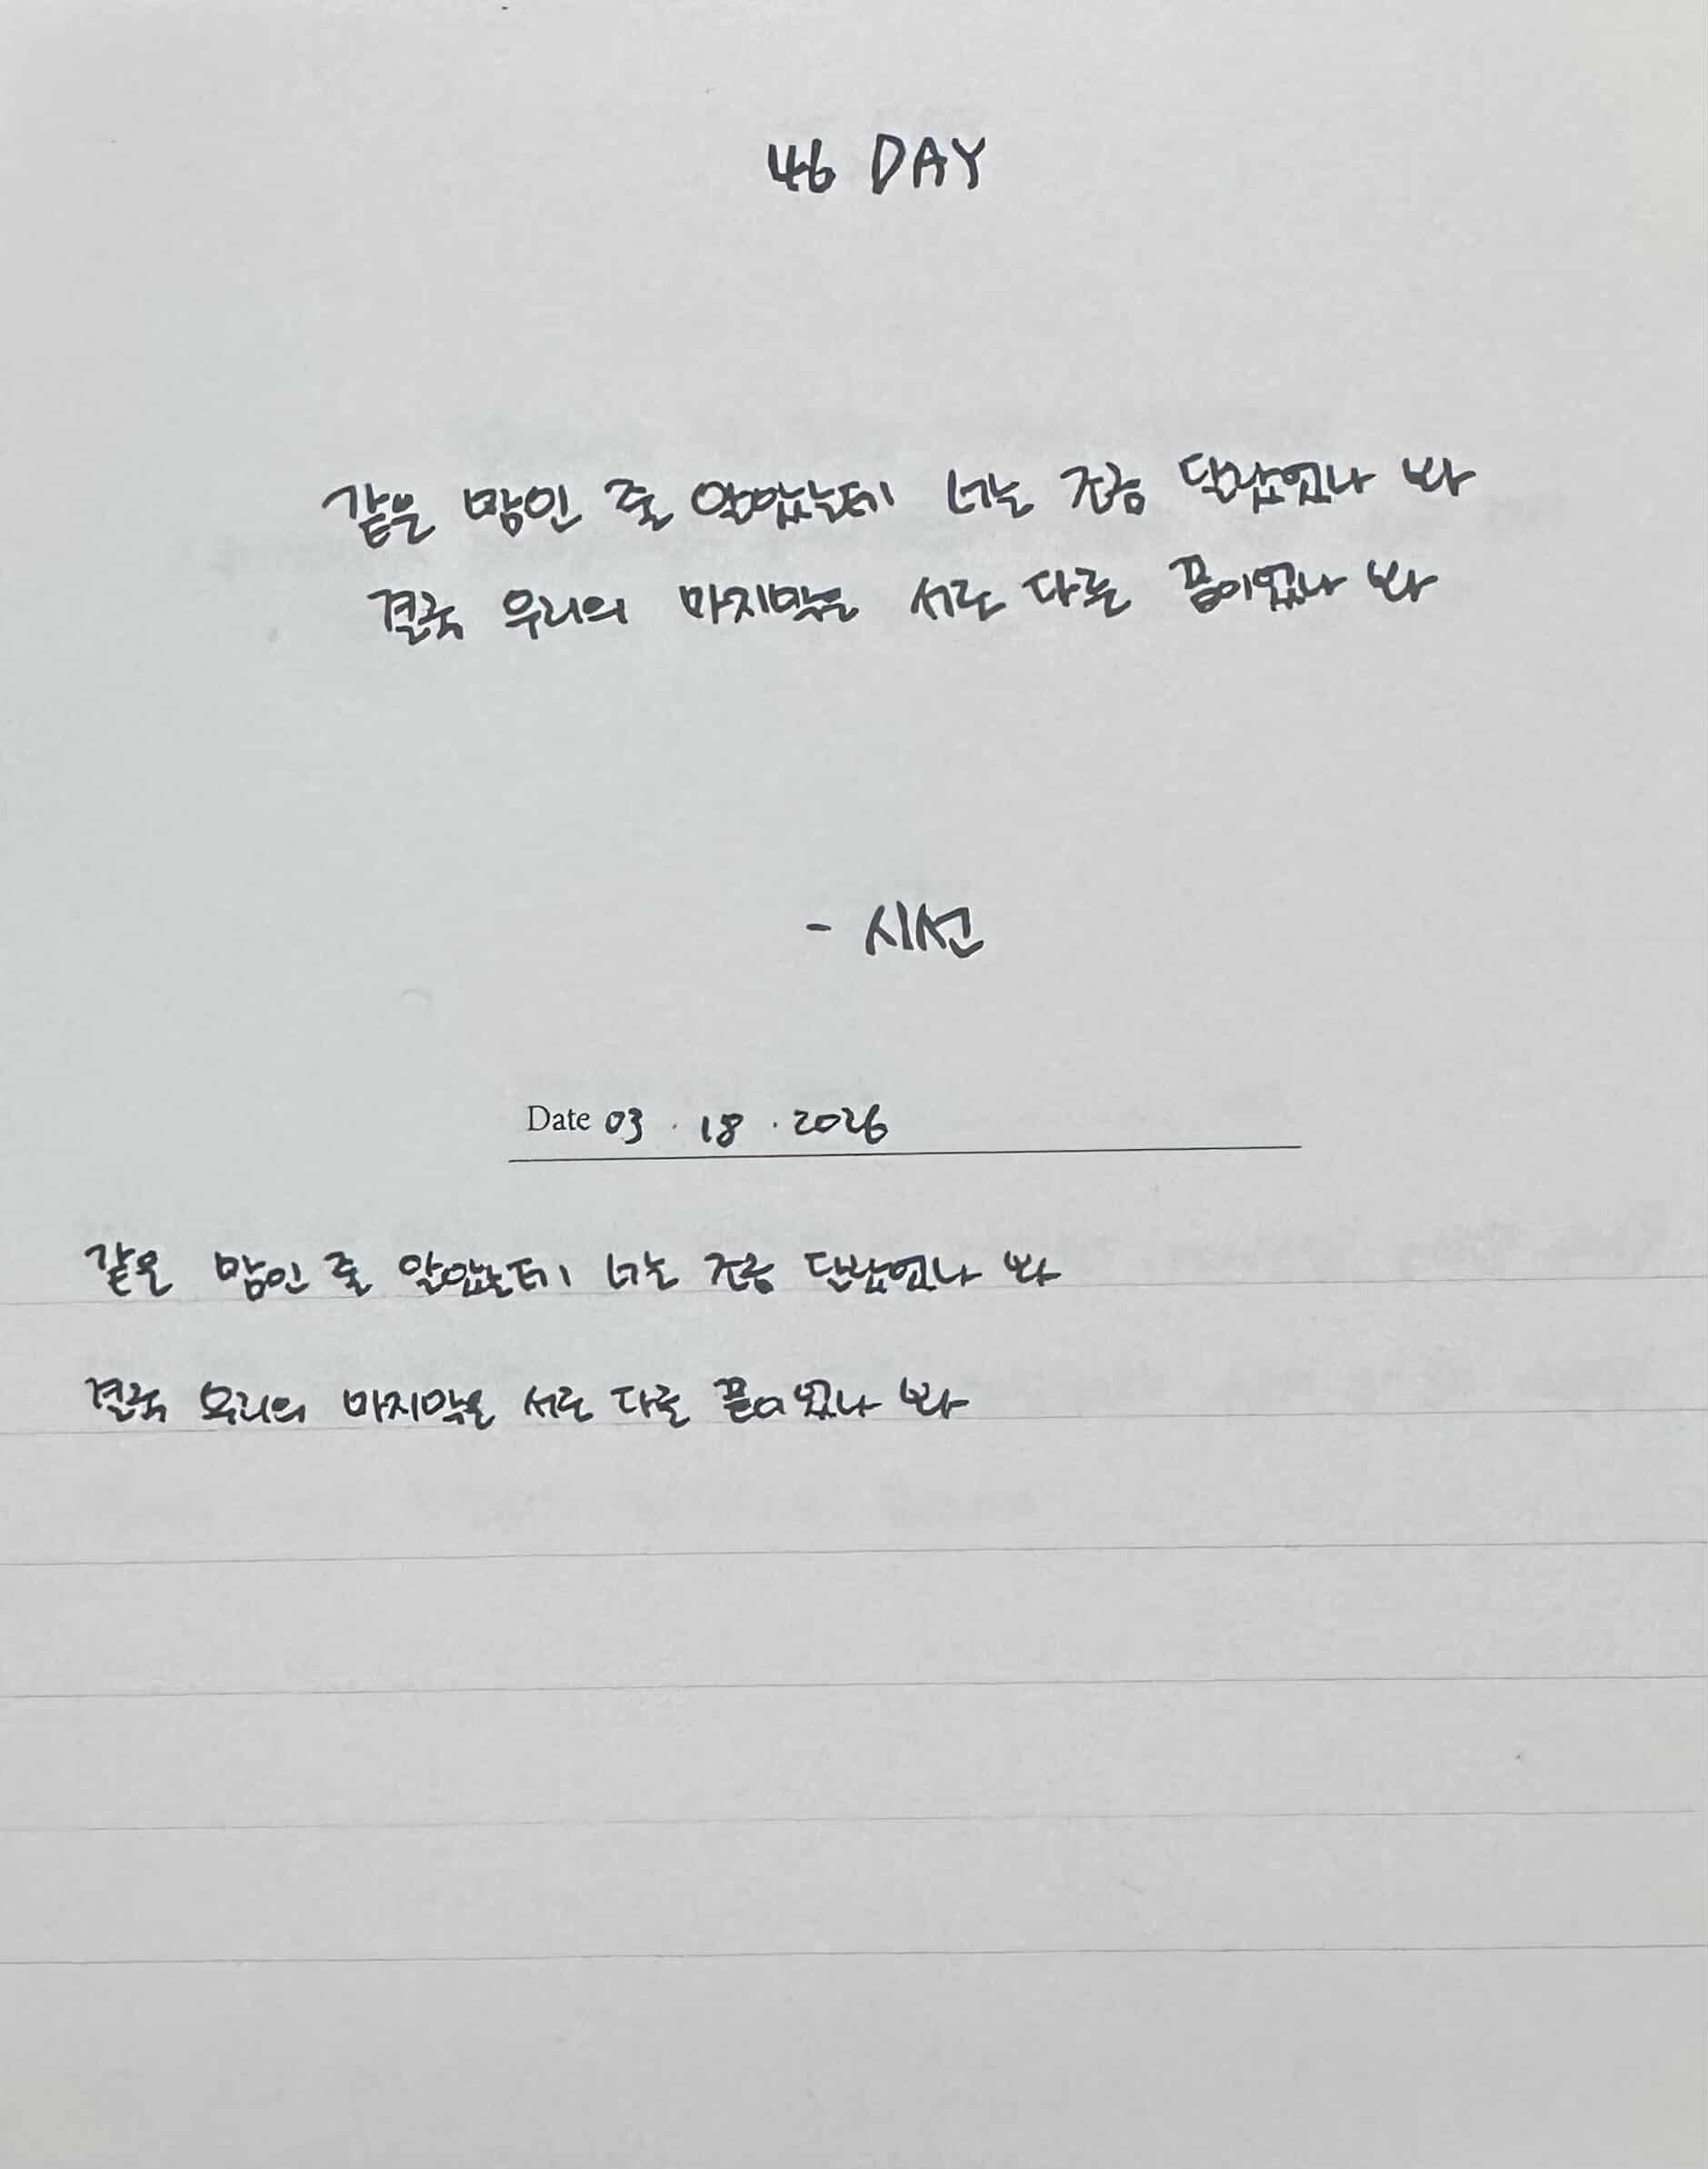 46 DAY
같은 맘인 줄 알았는데 너는 조금 달랐었나 봐
결국 우리의 마지막은 서로 다른 꿈이었나 봐
- 시선
Date 03 · 18 · 2026
같은 맘인 줄 알았는데 너는 조금 달랐었나 봐
결국 우리의 마지막은 서로 다른 끝이었나 봐